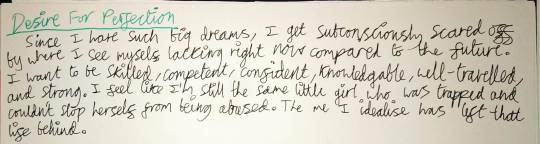 Desire For Perfection
Since I have such big dreams, I get subconsciously scared
by where I see myself lacking right now compared to the future.
I want to be skilled, competent, confident, knowledgable, well-travelled,
and strong. I feel like I'm still the same little girl who was trapped and
couldn't stop herself from being abused. The me I idealise has left that
life behind.